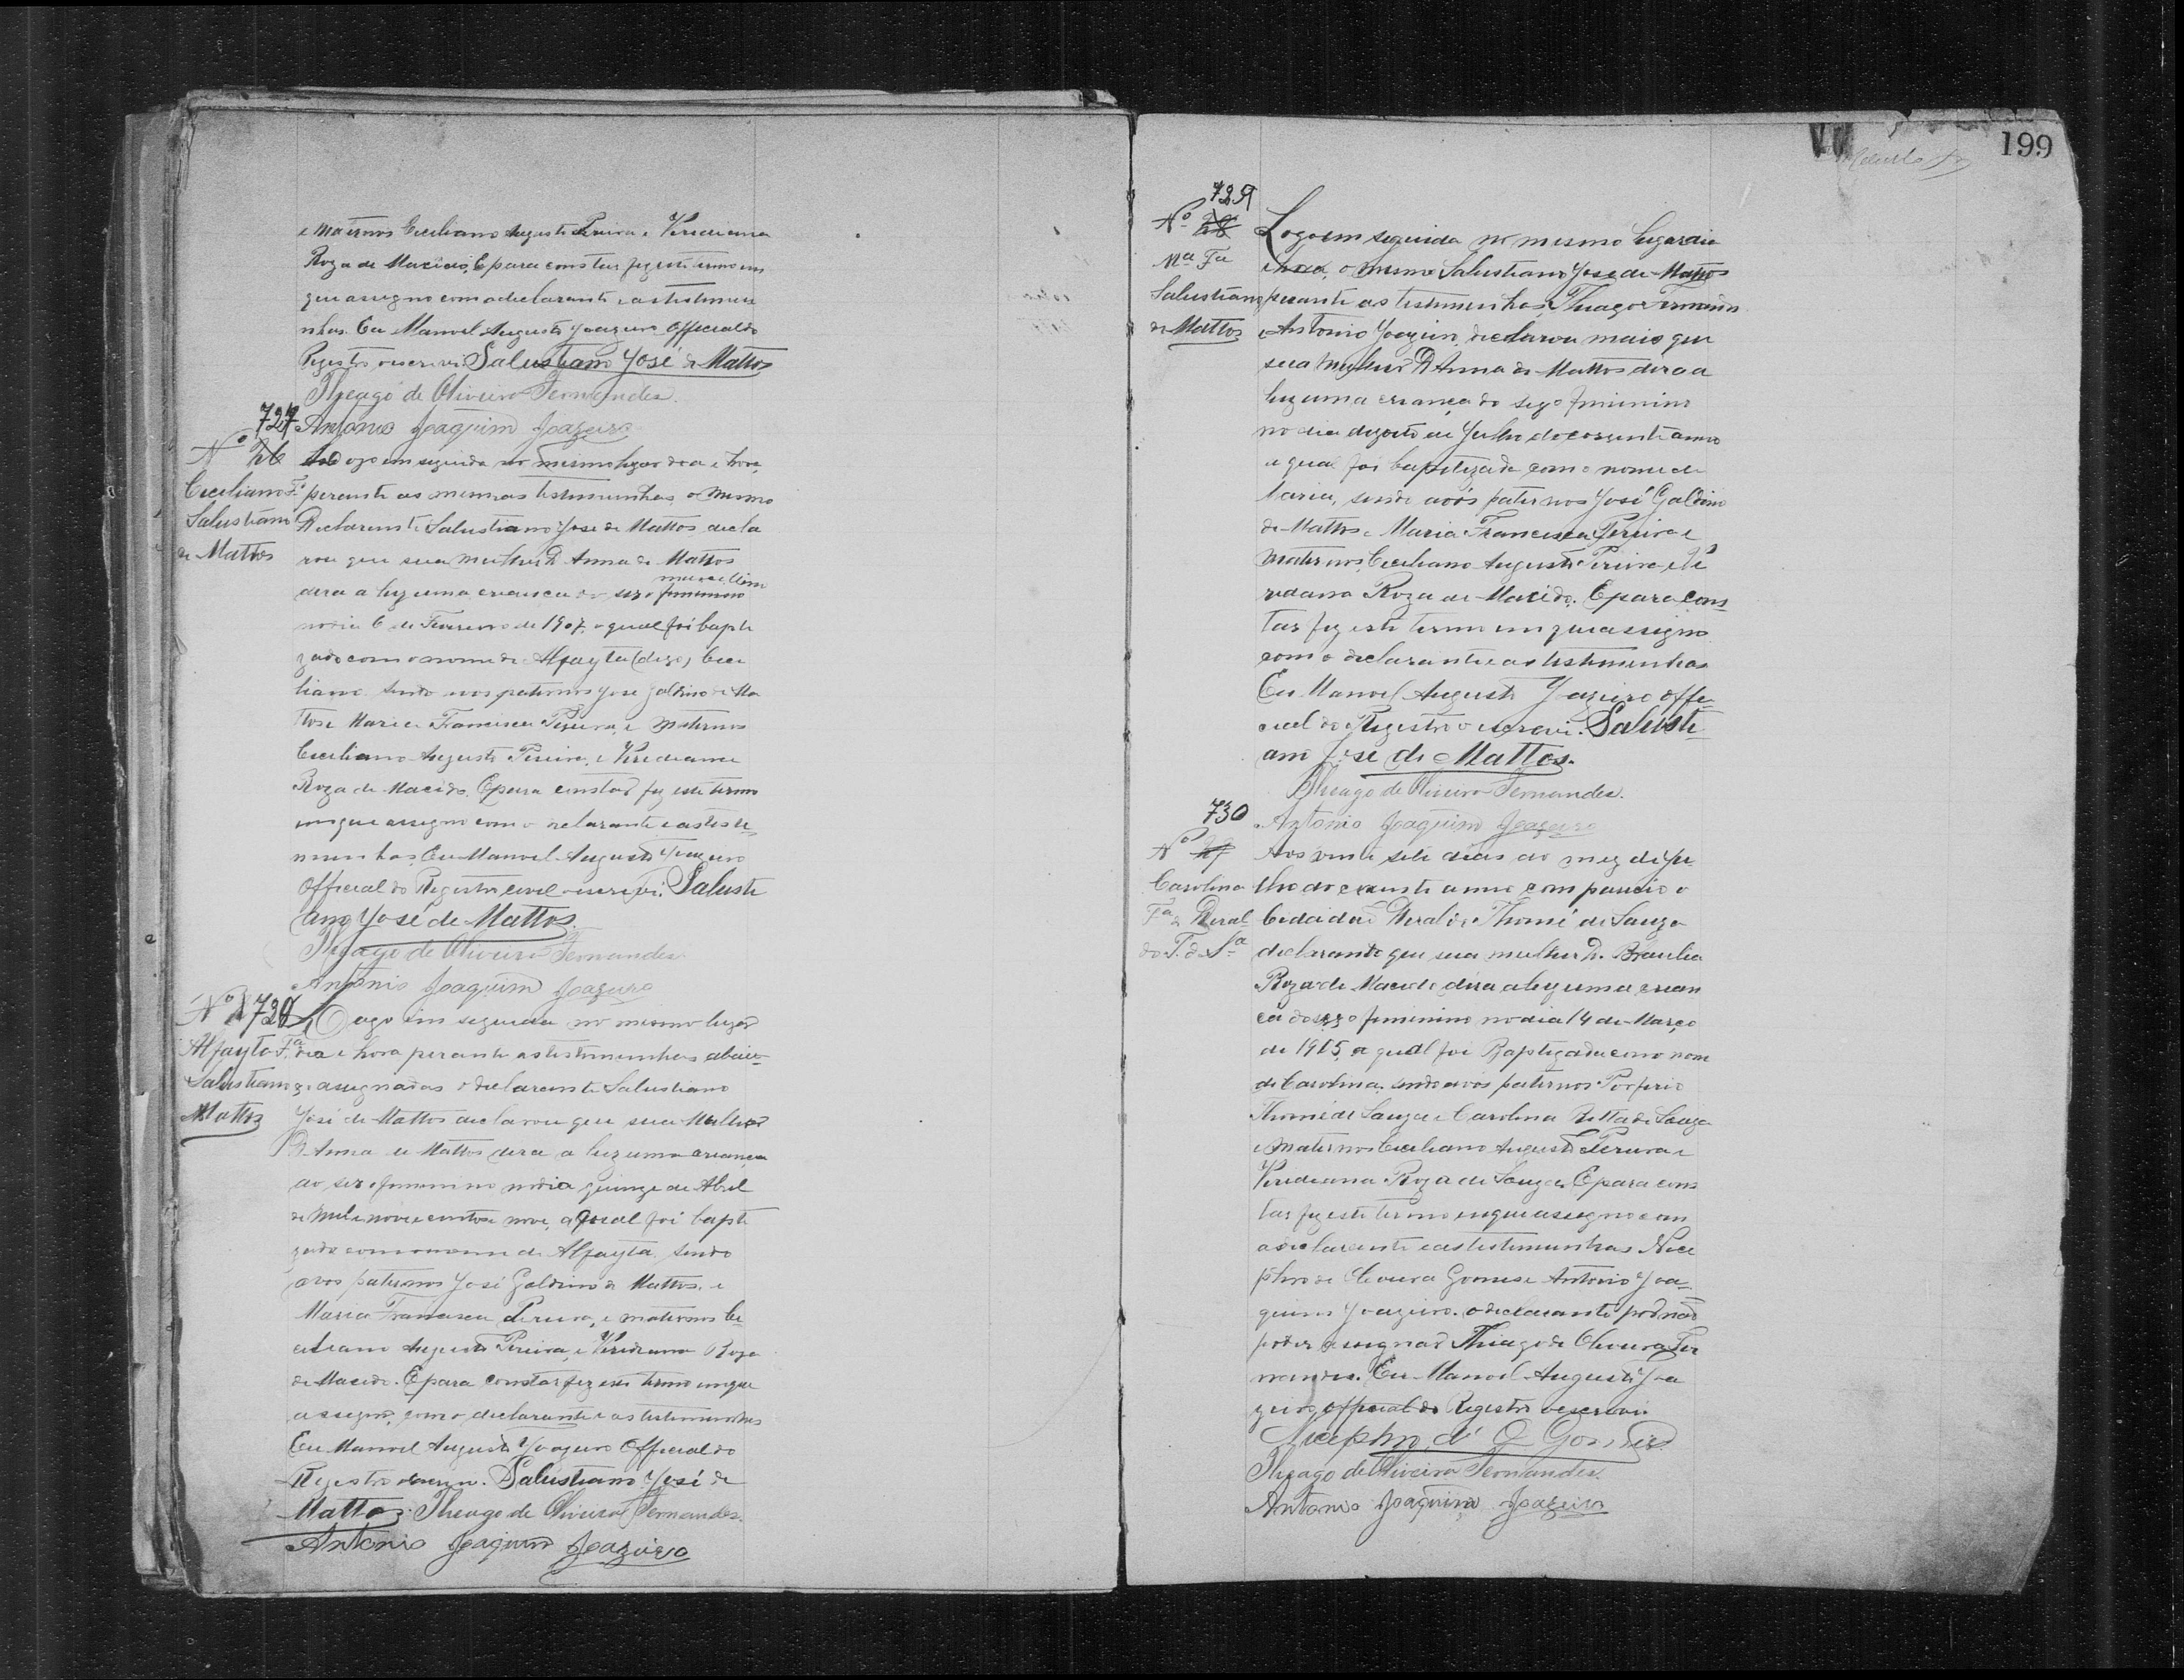 e maternos Ceciliano Augusto Pereira e Virediana
Roza de Macedo, E para constar fiz este termo em
que assigno com o declarante e as testemu
nhas. Eu Manoel Augusto Joazeiro Official do
Registro o escrevi. Salustiano José de Mattos
Theago de Oliveira Fernandes.
Antonio Joaquim Joazeiro
727
Nº 26
Ceciliano Fº
Salustiano
de Mattos
Logo em seguida no mesmo lugar dia e hora,
perante as mesmas testemunhas, o mesmo
Declarante Salustiano Jose de Mattos decla
rou que sua mulher D Anna de Mattos
masculino
dera a luz uma creança do sexo feminino
no dia 6 de Fevereiro de 1907, o qual foi bapti
zado com o nome de Alfayta (digo) Ceci
liano. Sendo avos paternos Jose Galdino de Ma
ttos e Maria Francisca Pereira, e maternos
Ceciliano Augusto Pereira, e Virediana
Roza de Macedo. E para constar fiz este termo
em que assigno com o declarante e as teste
munhas, Eu Manoel Augusto Joazeiro
Official do Registro civil o escrevi. Salusti
ano José de Mattos.
Theago de Oliveira Fernandes
Antonio Joaquim Joazeiro
Nº 728
Alfayta Fª
Salustiano
Mattos
Logo em seguida no mesmo lugar
dia e hora perante as testemunhas abaix
o assignadas o declarante Salustiano
José de Mattos declarou que sua Mulher
D Anna de Mattos dera a luz uma creança
do sexo feminino no dia quinze de Abril
de mil e novecentos e nove, a qual foi bapti
zada com o nome de Alfayta, sendo
avos paternos José Galdino de Mattos, e
Maria Francisca Pereira, e maternos Ce
ciliano Augusto Pereira, e Virediana Roza
de Macedo. E para constar fiz este termo em que
assigno, com o declarante e as testemunhas
Eu Manoel Augusto Joazeiro Official do
Registro o escrevi. Salustiano José de
Mattos. Theago de Oliveira Fernandes.
Antonio Joaquim Joazeiro
199
729
Nº 28
Mª Fª
Salustiano
de Mattos
Logo em seguida no mesmo lugar dia
e hora, o mesmo Salustiano Jose de Mattos
perante as testemunhas, Thiago Fernandes
e Antonio Joazeiro, declarou mais que
sua mulher D Anna de Mattos dera a
luz uma creança do sexo feminino
no dia dezoito de Julho do corrente anno
a qual foi baptizada com o nome de
Maria, sendo avós paternos José Galdino
de Mattos e Maria Francisca Pereira e
maternos, Ceciliano Augusto Pereira e Vi
rediana Roza de Macedo. E para cons
tar fiz este termo em que assigno
com o declarante e as testemunhas
Eu Manoel Augusto Joazeiro Offi
cial do Registro o escrevi. Salusti
ano José de Mattos.
Theago de Oliveira Fernandes.
Antonio Joaquim Joazeiro
730
Nº
Carolina
Fª de Deral
do T. de Sª
Aos vinte sete dias do mez de Ju
lho do corrente anno compareceu o
Cidadão Deraldo Thomé de Souza
declarando que sua mulher D. Braulia
Roza de Macedo dera a luz uma crean
ça do sexo feminino no dia 14 de Março
de 1915, a qual foi Baptizada com o nome
de Carolina, sendo avós paternos Porfirio
Thomé de Souza e Carolina Ritta de Souza
e maternos Ceciliano Augusto Pereira e
Virediana Roza de Souza. E para cons
tar fiz este termo em que assigno com
o declarante e as testemunhas Nice
phro de Oliveira Gomes e Antonio Joa
quim Joazeiro. o declarante por não
poder assignar Thiago de Oliveira Fer
nandes. Eu Manoel Augusto Joa
zeiro official do Registro o escrevi.
Nicephro d' O Gomes
Theago de Oliveira Fernandes.
Antonio Joaquim Joazeiro